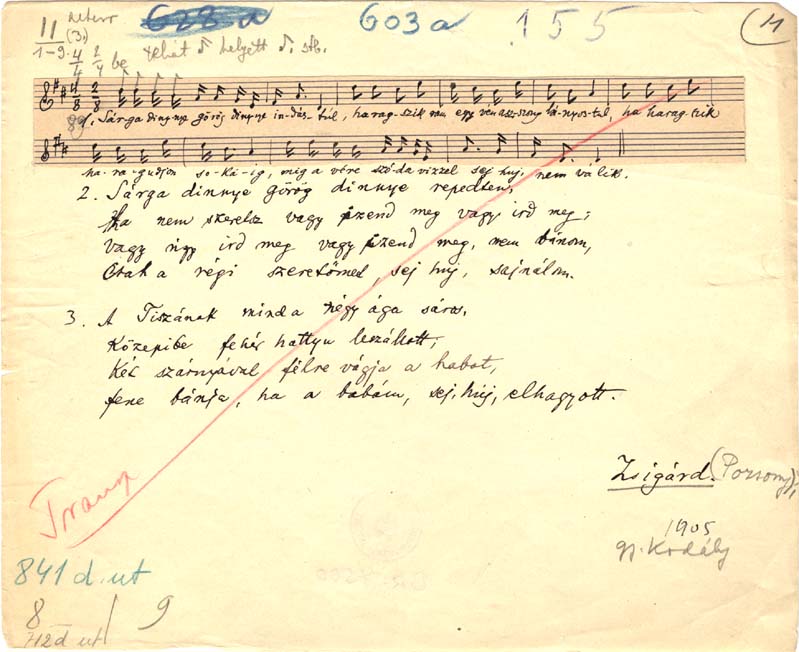 11 628a 603a 155 11
1-9. (3)
4/4 2/4 be tehát ♪ helyett ♩. stb.
4/8 2/8
1. Sárga dinnye görög dinnye in-dás-túl, harag-szik rám egy vén asszony lá-nyos-tul, ha harag-szik
ha-ra-gudjon so-ká-ig, míg a vére szóda vízzel sej huj, nem válik.
2. Sárga dinnye görög dinnye repedten,
Ha nem szeretsz vagy izend meg vagy ird meg;
vagy úgy ird meg vagy izend meg, nem bánom,
Csak a régi szeretőmet, sej huj, sajnálom.
3. A Tiszának mind a négy ága sáros,
Közepibe fehér hattyu leszállott,
Két szárnyával félre vágja a habot,
fene bánja, ha a babám, sej, húj, elhagyott.
Zsigárd. (Pozsony),
1905
gy. Kodály
Transp
841 d. ut
8 / 9
112d ut